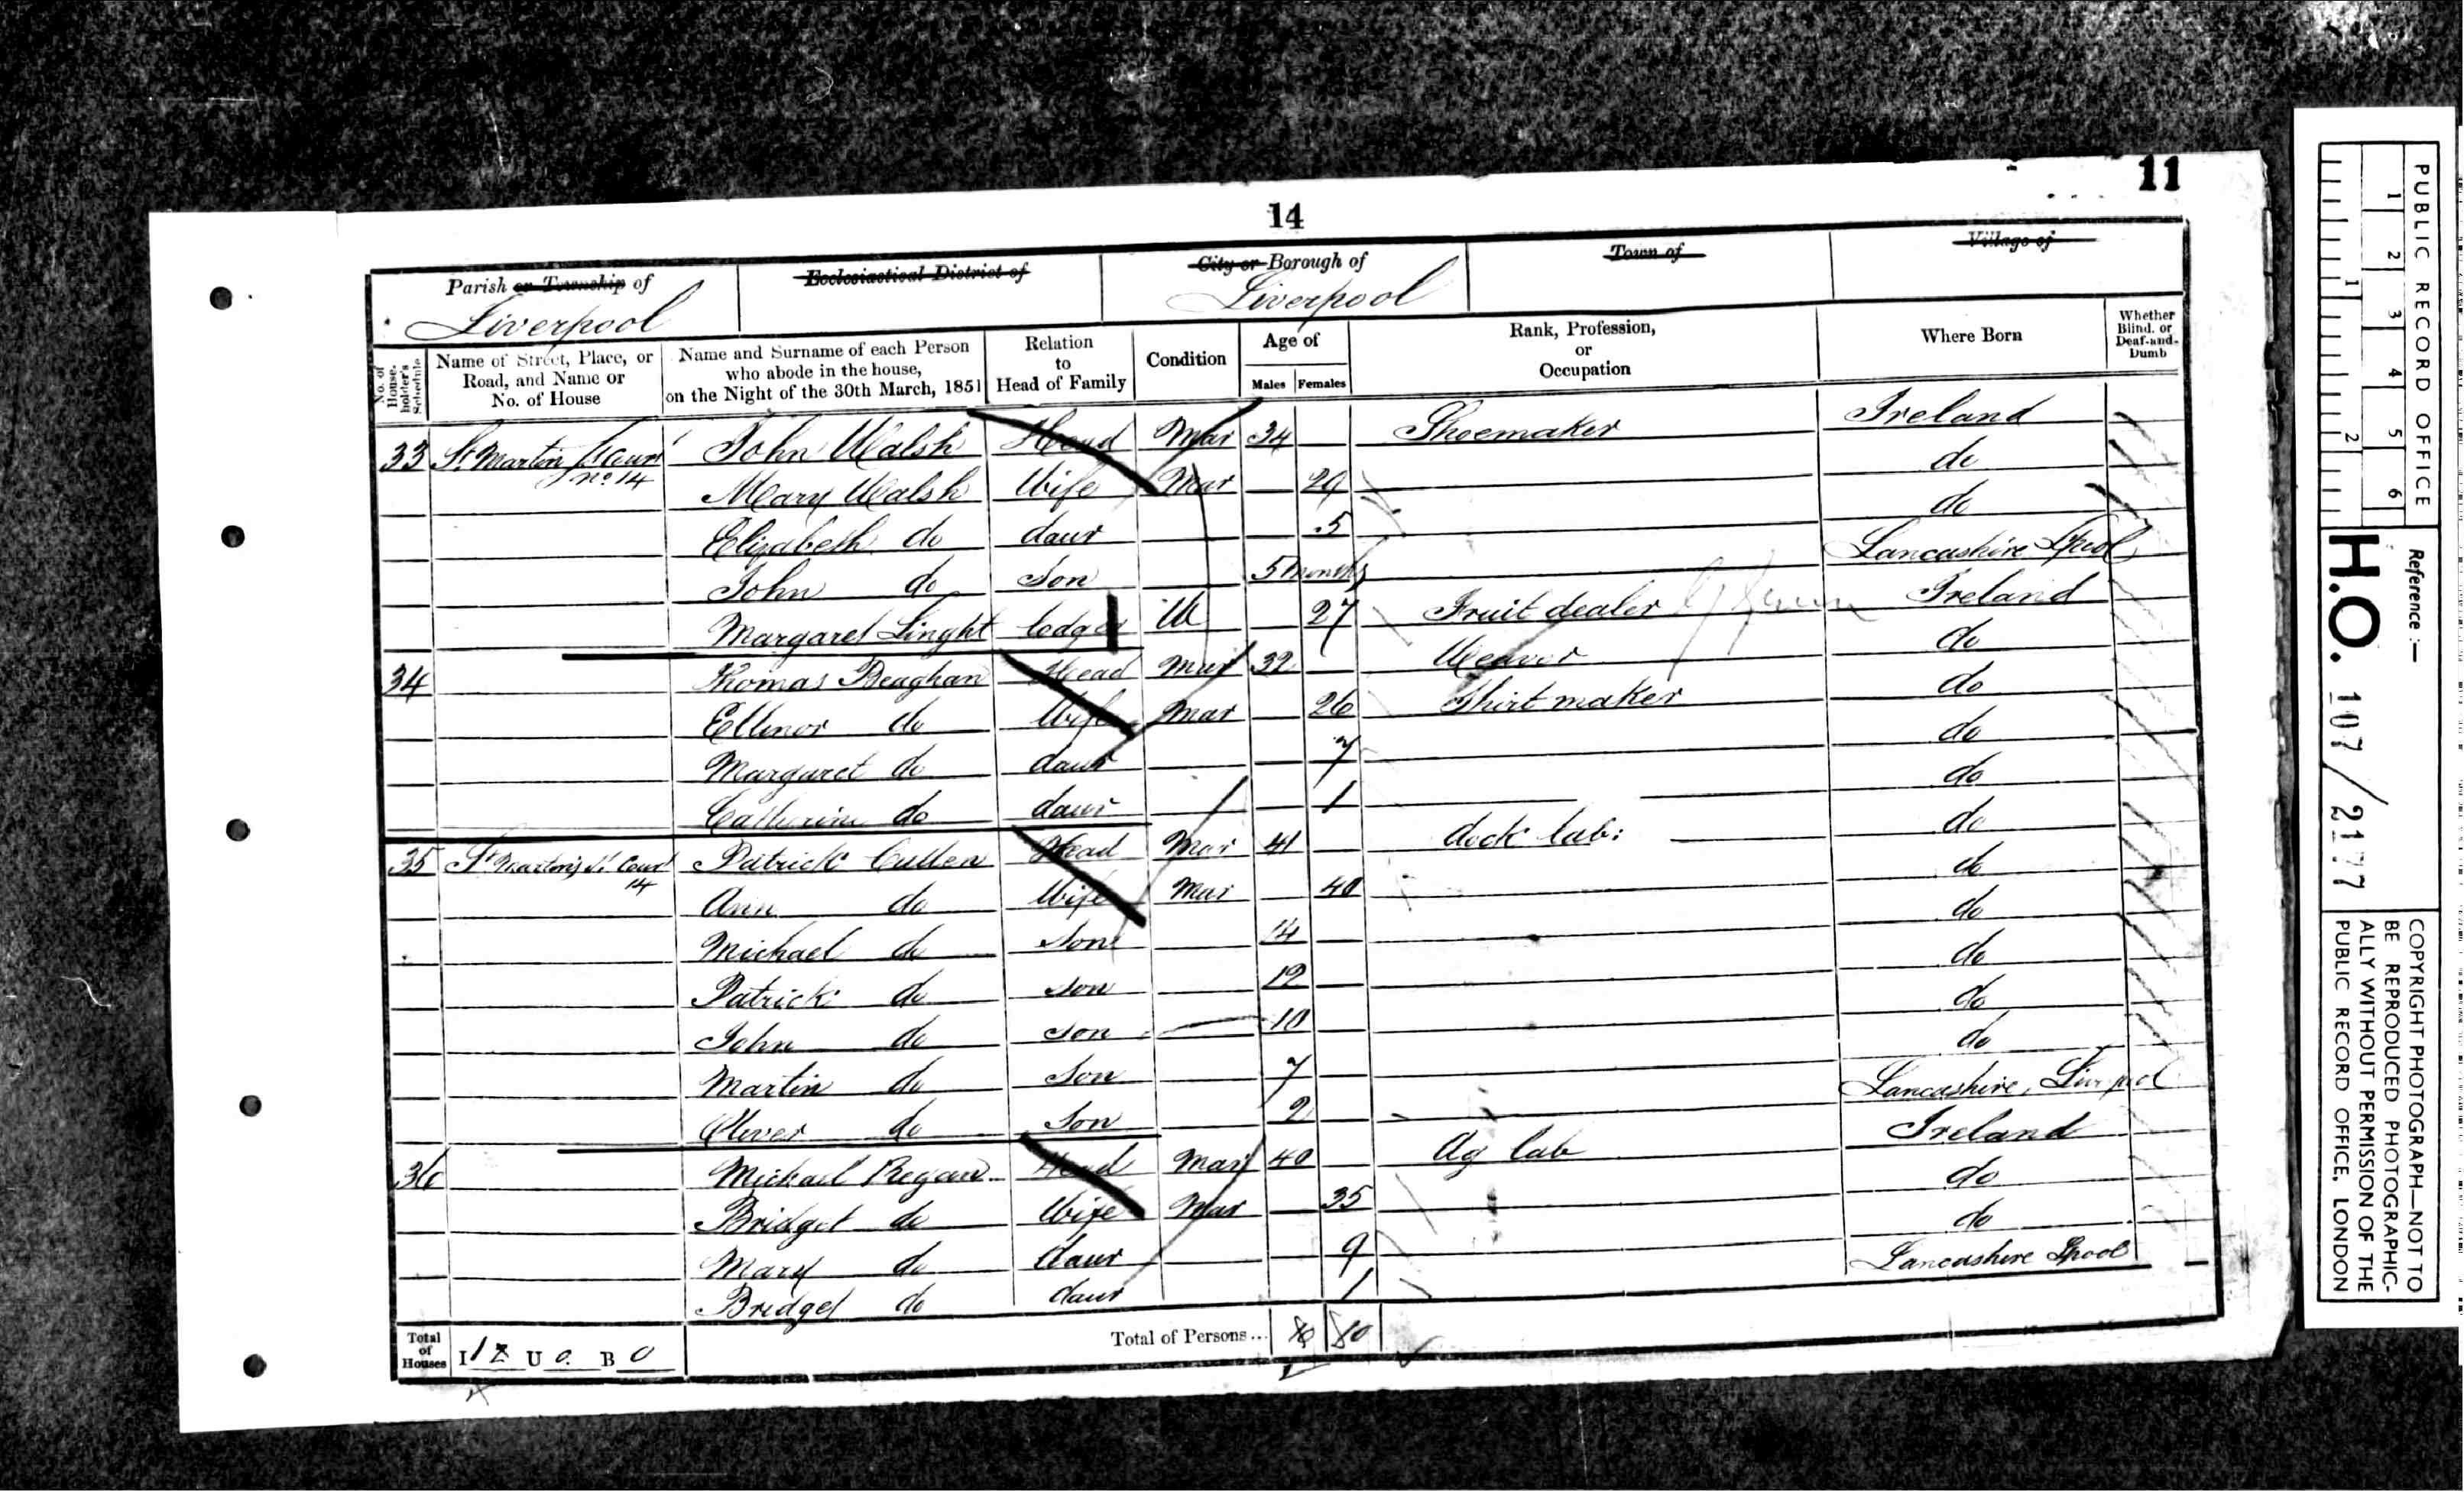 11
14
Parish or Township of
Liverpool
Ecclesiastical District of
City or Borough of
Liverpool
Town of
Village of
No. of House-holder's Schedule
Name of Street, Place, or Road, and Name or No. of House
Name and Surname of each Person who abode in the house, on the Night of the 30th March, 1851
Relation to Head of Family
Condition
Age of
Males Females
Rank, Profession, or Occupation
Where Born
Whether Blind, or Deaf-and-Dumb
33 St Martin St Court John Walsh Head Mar 34 Shoemaker Ireland
no. 14 Mary Walsh Wife Mar 29 do
Elizabeth do daur 5 do
John do Son 5 months Lancashire Lpool
Margaret lodger W 27 Fruit dealer Ireland
34 Thomas Head Mar 32 Weaver do
Ellinor do Wife Mar 26 Shirt maker do
Margaret do daur 7 do
Catherine do daur 1 do
35 St Martin's St Court Patrick Cullen Head Mar 41 dock lab: do
14 Ann do Wife Mar 40 do
Michael do Son 14 do
Patrick do Son 12 do
John do Son 10 do
Martin do Son 7 do
Oliver do Son 2 Lancashire, Liverpool
36 Michael Regan Head Mar 40 Ag lab Ireland
Bridget do Wife Mar 35 do
Mary do daur 9 do
Bridget do daur 1 Lancashire Lpool
Total of Houses I U 0 B 0 Total of Persons...
PUBLIC RECORD OFFICE
1 2 3 4 5 6
1 2
Reference :-
H.O. 107/2177
COPYRIGHT PHOTOGRAPH—NOT TO
BE REPRODUCED PHOTOGRAPHIC-
ALLY WITHOUT PERMISSION OF THE
PUBLIC RECORD OFFICE, LONDON